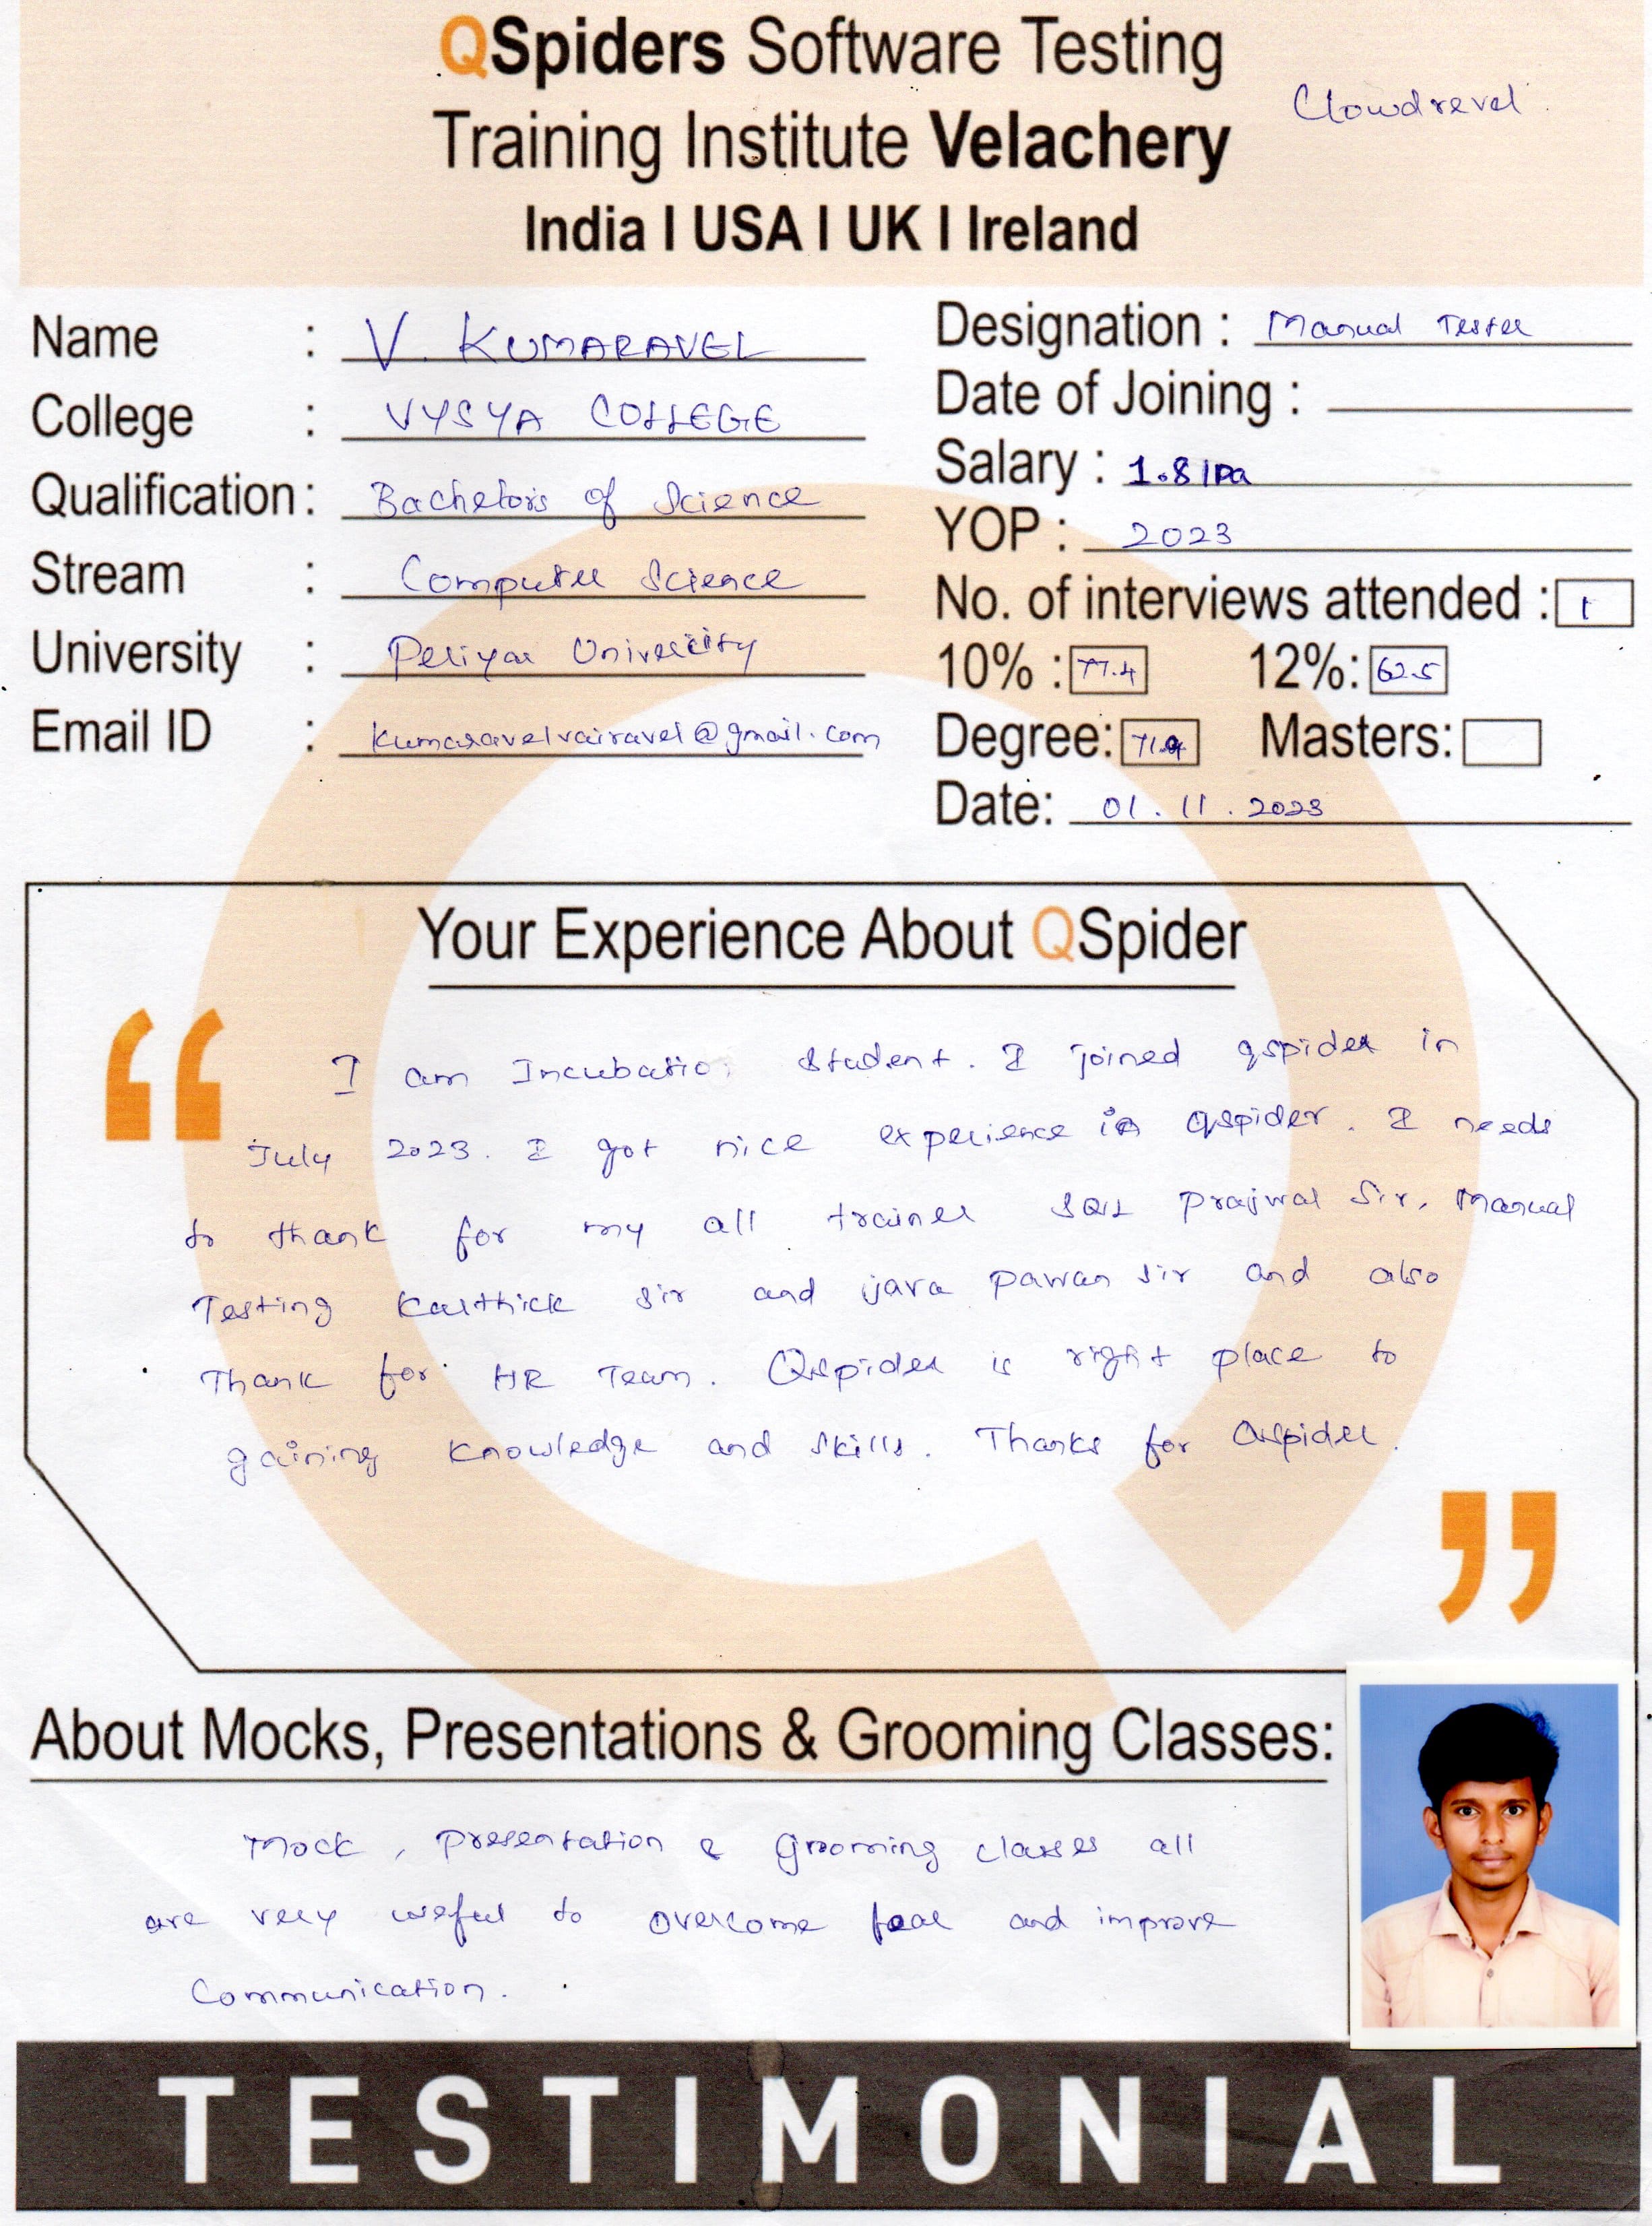 QSpiders Software Testing
Training Institute Velachery
Cloudrevel
India I USA I UK I Ireland
Name : V. KUMARAVEL
College : VYSYA COLLEGE
Qualification : Bachelors of Science
Stream : Computer Science
University : Periyar Univercity
Email ID : kumaravelvairavel@gmail.com
Designation : Manual Tester
Date of Joining :
Salary : 1.8 lpa
YOP : 2023
No. of interviews attended : 1
10% : 77.4 12%: 62.5
Degree: Masters:
Date: 01.11.2023
Your Experience About QSpider
“
I am Incubatio Student. I joined qspider in
July 2023. I got nice experience in Qspider. I needs
to thank for my all trainer SQL Prajwal Sir, Manual
Testing Karthick sir and java pawan sir and also
Thank for HR Team. Qspider is right place to
gaining knowledge and skills. Thanks for Qspider.
”
About Mocks, Presentations & Grooming Classes:
Mock, presentation & Grooming classes all
are very useful to overcome fear and improve
Communication.
TESTIMONIAL